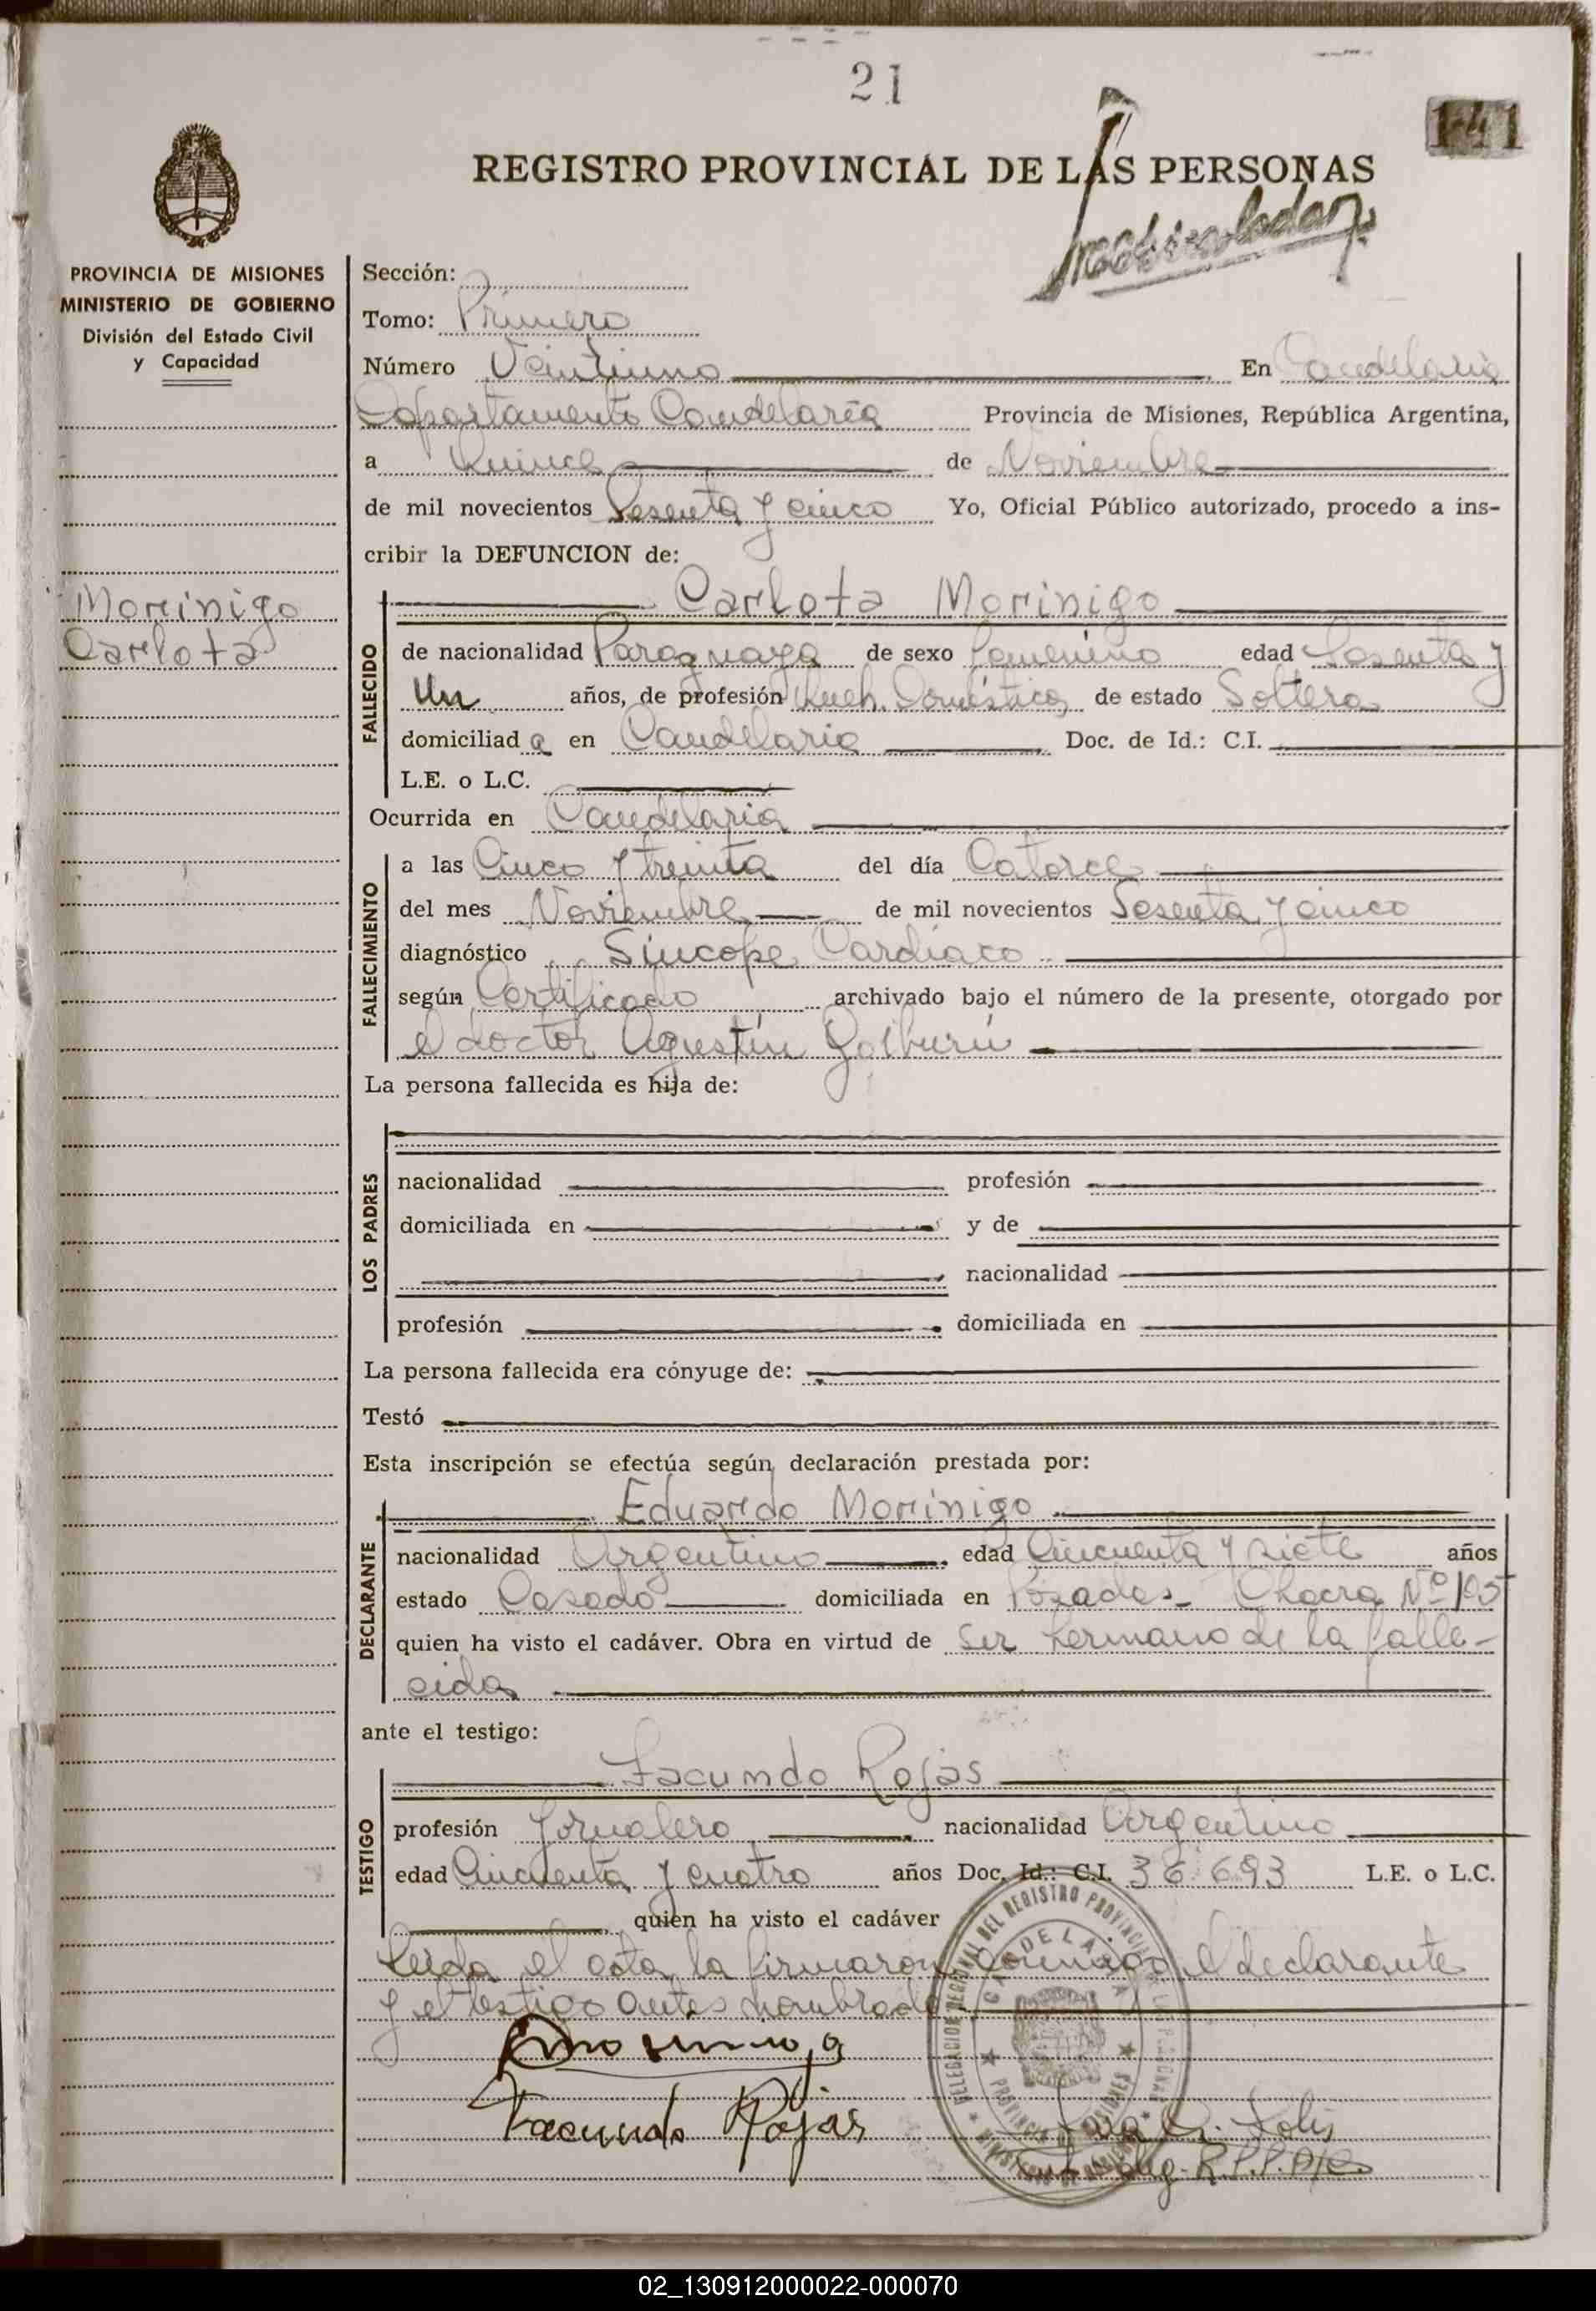 21
141
REGISTRO PROVINCIAL DE LAS PERSONAS
PROVINCIA DE MISIONES
MINISTERIO DE GOBIERNO
División del Estado Civil
y Capacidad
Morinigo
Carlota
Sección:
Tomo: Primero
Número Veintiuno En Candelaria
Departamento Candelaria Provincia de Misiones, República Argentina,
a Quince de Noviembre
de mil novecientos Sesenta y cinco Yo, Oficial Público autorizado, procedo a ins-
cribir la DEFUNCION de:
Carlota Morinigo
FALLECIDO
de nacionalidad Paraguaya de sexo femenino edad Sesenta y
Un años, de profesión Queh. Doméstico de estado Soltera
domiciliad a en Candelaria Doc. de Id.: C.I.
L.E. o L.C.
Ocurrida en Candelaria
FALLECIMIENTO
a las Cinco y treinta del día Catorce
del mes Noviembre de mil novecientos Sesenta y cinco
diagnóstico Síncope Cardíaco
según Certificado archivado bajo el número de la presente, otorgado por
el doctor Agustín Goiburú
La persona fallecida es hija de:
LOS PADRES
nacionalidad profesión
domiciliada en y de
nacionalidad
profesión domiciliada en
La persona fallecida era cónyuge de:
Testó
Esta inscripción se efectúa según declaración prestada por:
Eduardo Morinigo
DECLARANTE
nacionalidad Argentino edad Cincuenta y siete años
estado Casado domiciliada en Posadas - Chacra Nº 195
quien ha visto el cadáver. Obra en virtud de Ser hermano de la falle-
cida
ante el testigo:
Facundo Rojas
TESTIGO
profesión Jornalero nacionalidad Argentino
edad Cincuenta y cuatro años Doc. Id.: C.I. 36.693 L.E. o L.C.
quien ha visto el cadáver
Leida el acta la firmaron conmigo el declarante
y el testigo antes nombrado
Facundo Rojas
DELEGACION REGIONAL DEL REGISTRO PROVINCIAL DE LAS PERSONAS
CANDELARIA
PROVINCIA DE MISIONES
MINISTERIO DE GOBIERNO
02_130912000022-000070